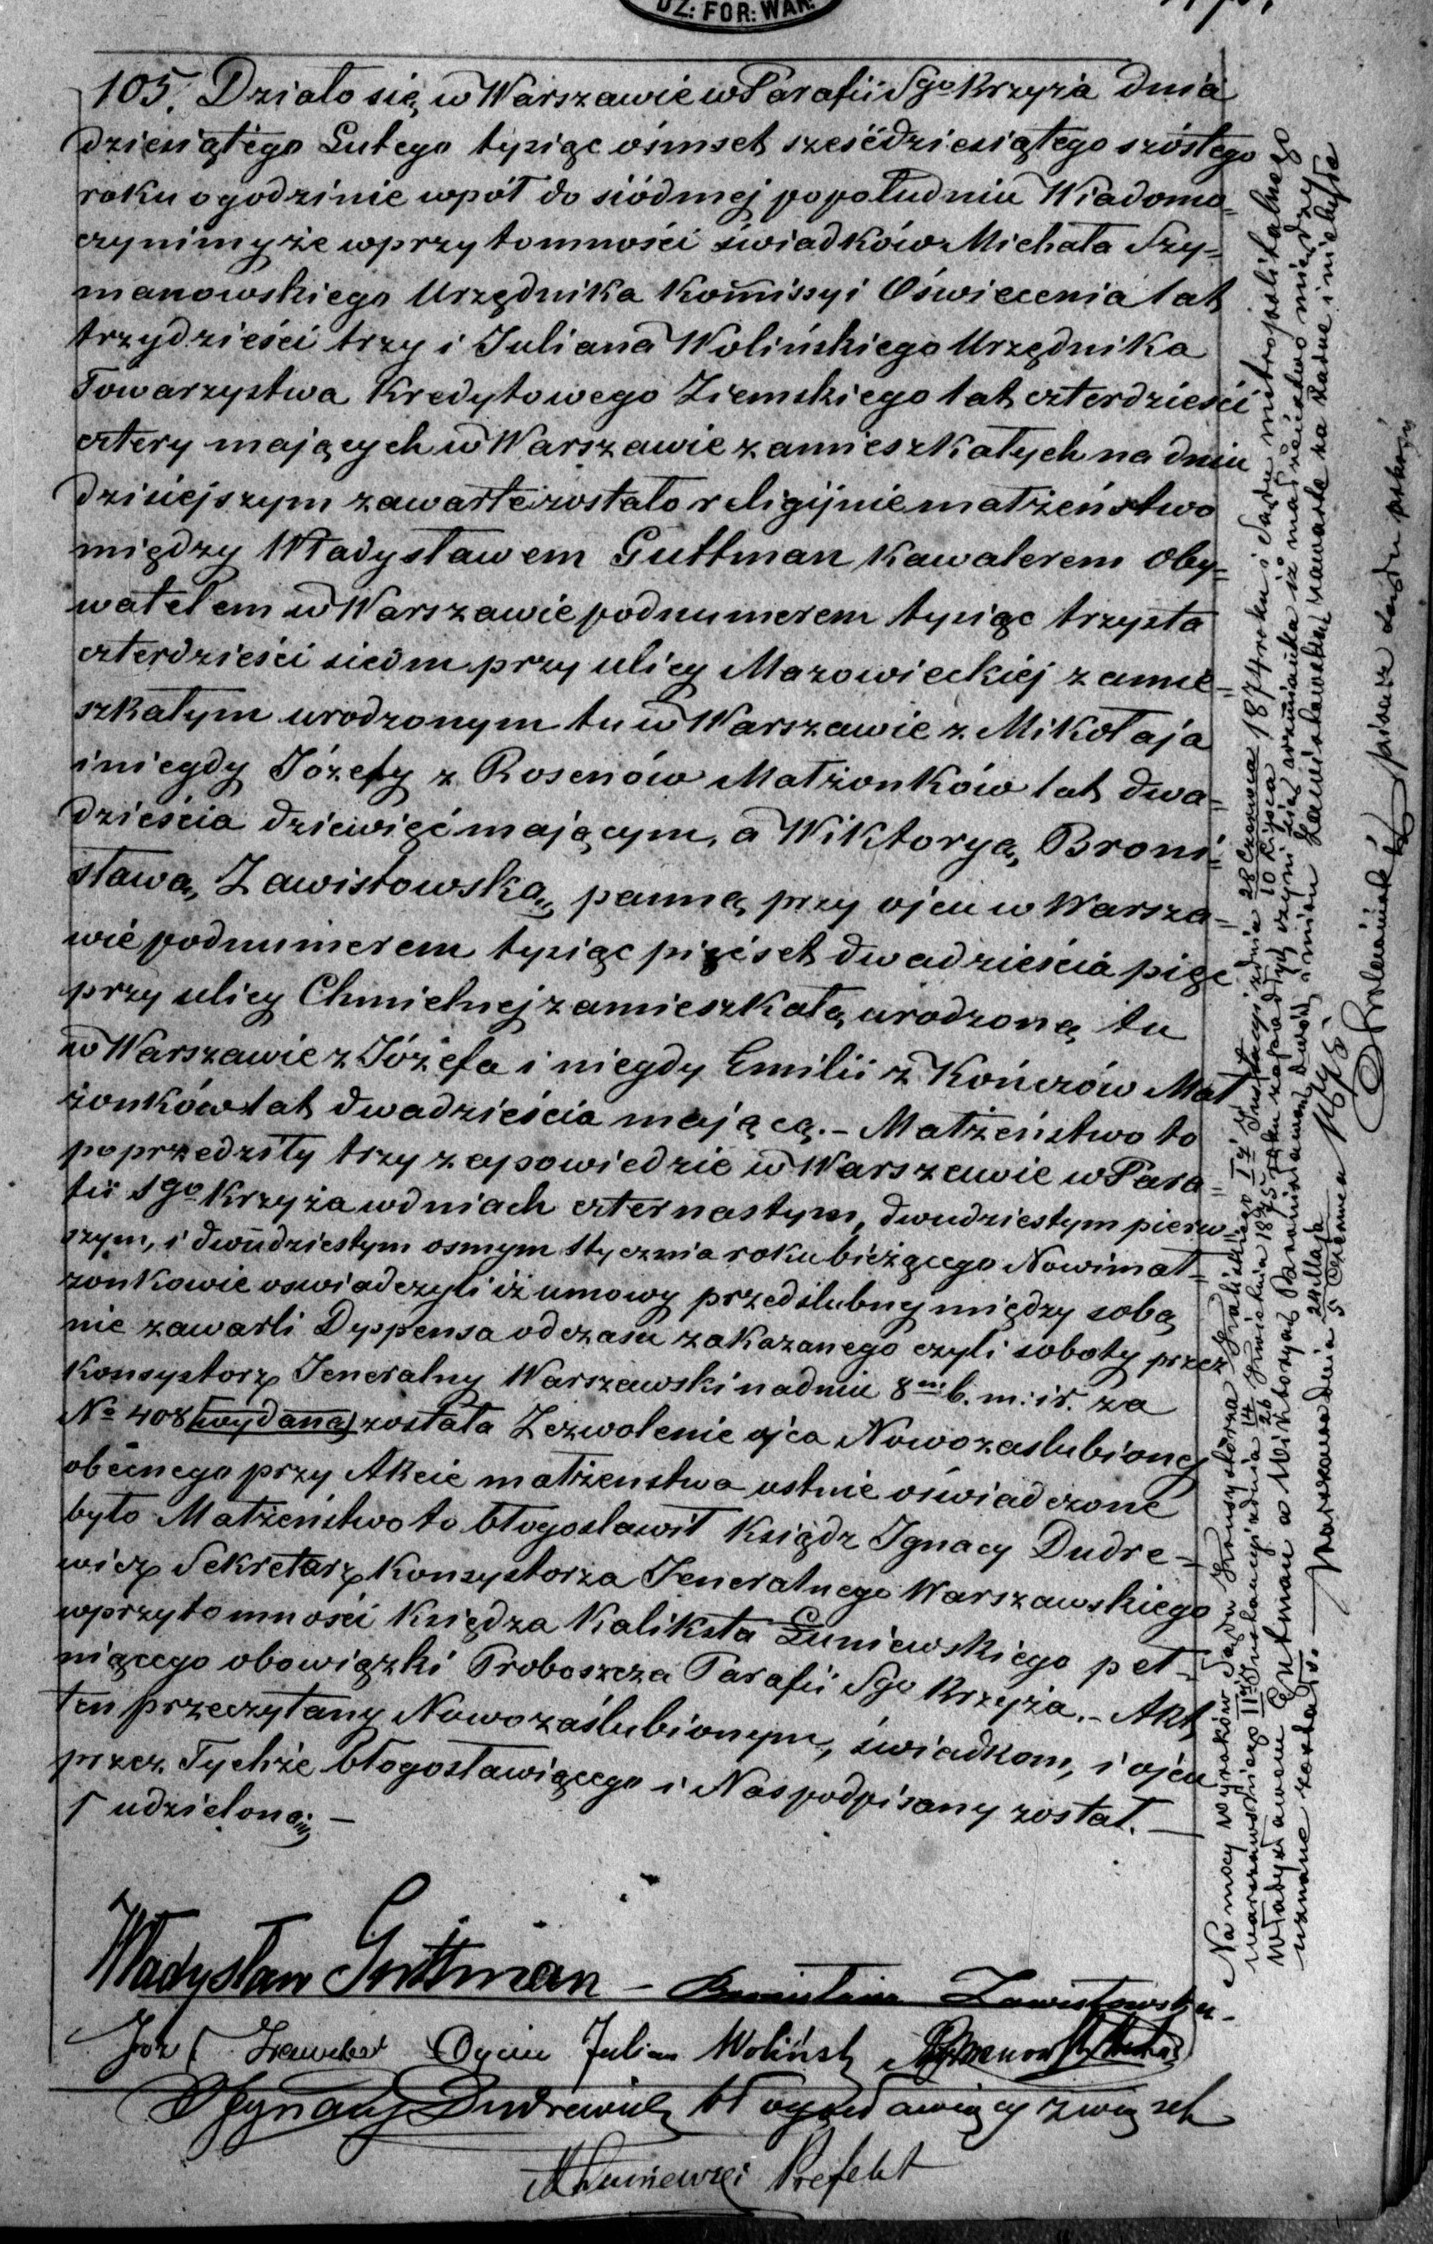 DZ: FOR: WAR:
105. Działo się w Warszawie w Parafii Sgo Krzyża dnia
dziesiątego Lutego tysiąc ośmset sześćdziesiątego szóstego
roku o godzinie wpół do siódmej popołudniu Wiadomo
czynimy że wprzytomności świadków Michała Szy=
manowskiego Urzędnika Kommissyi Oświecenia lat
trzydzieści trzy i Juliana Wolińskiego Urzędnika
Towarzystwa Kredytowego Ziemskiego lat czterdzieści
cztery mających w Warszawie zamieszkałych na dniu
dzisiejszym zawarte zostało religijnie małżeństwo
między Władysławem Guttman Kawalerem Oby=
watelem w Warszawie pod numerem tysiąc trzysta
czterdzieści siedm przy ulicy Mazowieckiej zamie=
szkałym urodzonym tu w Warszawie z Mikołaja
i niegdy Józefy z Rosenów Małżonków lat dwa=
dzieścia dziewięć mającym, a Wiktoryą Broni=
sławą Zawistowską, panną przy ojcu w Warsza=
wie pod numerem tysiąc pięćset dwadzieścia pięć
przy ulicy Chmielnej zamieszkałą, urodzoną tu
w Warszawie z Józefa i niegdy Emilii z Kończów Mał
żonków lat dwadzieścia mającą. – Małżeństwo to
poprzedziły trzy zapowiedzie w Warszawie w Para=
fii Sgo Krzyża w dniach czternastym, dwudziestym pierw=
szym, i dwudziestym osmym Stycznia roku bieżącego Nowi mał=
żonkowie oswiadczyli iż umowy przedślubnej między sobą
nie zawarli Dyspensa od czasu zakazanego czyli soboty przez
Konsystorz Jeneralny Warszawski na dniu 8m b. m: i r. za
No 408 (wydana) została Zezwolenie ojca Nowozaslubionej
obecnego przy Akcie małżenstwa ustnie oświadczone
było Małżeństwo to błogosławił Ksiądz Ignacy Dudre=
wicz Sekretarz Konsystorza Jeneralnego Warszawskiego
wprzytomności Księdza Kaliksta Łuniewskiego peł=
niącego obowiązki Proboszcza Parafii Sgo Krzyża. – Akt
ten przeczytany Nowozaślubionym, świadkom, i ojcu
przez Tychże błogosławiącego i Nas podpisany został. —
udzieloną —
Władysław Guttman – Bronisława Zawistowska
Józef Ojciec Julian Woliński
Ignacy Dudrewicz błogosławiący związek
Łuniewski Prefekt
Na mocy wyroków Sądu Konsystorza 1874 roku i Sądu metropolitalnego
warszawskiego 1875 roku zapadłych czyni się wzmianka iż małżeństwo między
Władysławem Gutman a Wiktoryą Bronisławą dwóch imion Zawistowską zawarte za żadne i niebyłe
uznane zostało. — Warszawa dnia 24 Maja / 5 Czerwca
pisarz Sądu